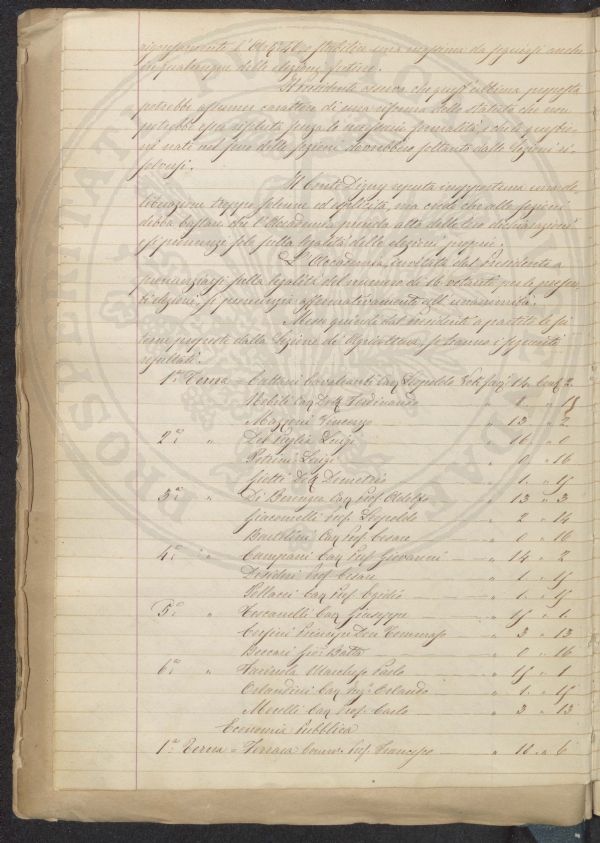 rigorosamente l'Art. e stabilire una massima da seguirsi anche
in qualunque delle elezioni future.
Il Presidente avverte che quest'ultima proposta
potrebbe assumere carattere di una riforma dello statuto che non
potrebbe essa senza le necessarie formalità, e che le questio-
ni nate nel seno delle sezioni dovrebbero soltanto dalle Sezioni ri-
solversi.
Il Conte Digny reputa inopportuna una de-
liberazione troppo solenne ed esplicita, ma crede che alle sezioni
debba bastare che l'Accademia prenda atto delle loro dichiarazioni
sulla legalità delle elezioni proprie.
L'Accademia, invitata dal Presidente a
pronunziarsi sulla legalità del numero di 16 votanti per le presen-
ti elezioni, si pronunzia affermativamente all'unanimità.
Messe quindi dal Presidente a partito le se-
terne proposte dalla Sezione di Agricoltura, si hanno i seguenti
resultati.
1ª Terna = Cattani Cavalcanti Cav. Leopoldo Voti fav.i 14. Cont. 2
Nobili Cav. Dott. Ferdinando " 1 " 15
Mazzini Vincenzo " 13 " 2
2ª " Del Puglia Luigi " 16 " 0
Petrini Luigi " 0 " 16
Giotti Dott. Demetrio " 1 " 15
3ª " Di Berenger Cav. Prof. Adolfo " 13 " 3
Giacomelli Prof. Leopoldo " 2 " 14
Bartolini Cav. Prof. Cesare " 0 " 16
4ª " Campani Cav. Prof. Giovanni " 14 " 2
Desideri Prof. Cesare " 1 " 15
Pollacci Cav. Prof. Egidio " 1 " 15
5ª " Toscanelli Cav. Giuseppe " 15 " 1
Corsini Principe Don Tommaso " 3 " 13
Beccari Gio: Batta " 0 " 16
6ª " Marchese Carlo " 15 " 1
Orlandini Cav. Ing. Orlando " 1 " 15
Morelli Cav. Prof. Carlo " 3 " 13
Economia Pubblica
1ª Terna = Ferrara Comm. Prof. Francesco " 10 " 6